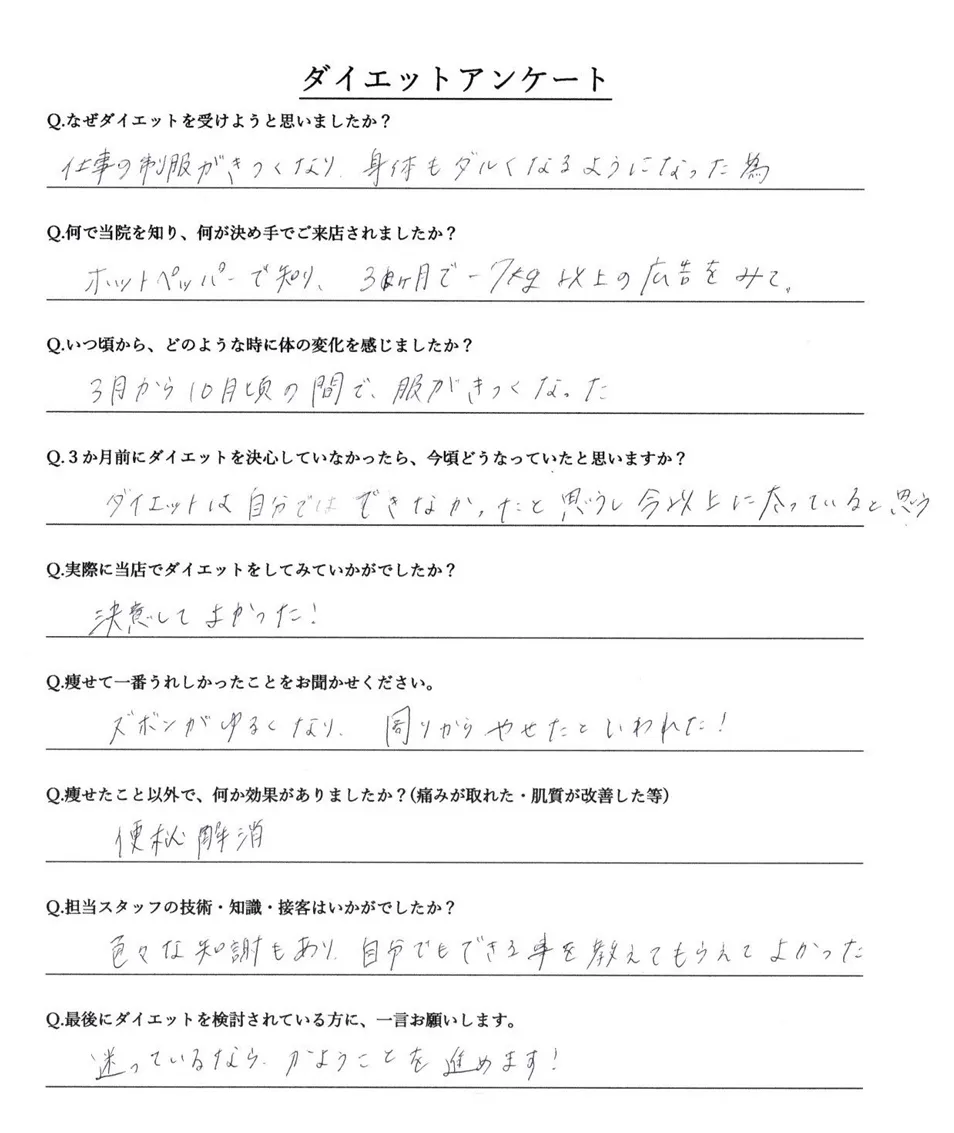 ダイエットアンケート
Q.なぜダイエットを受けようと思いましたか？
仕事の制服がきつくなり、身体もダルくなるようになった為
Q.何で当院を知り、何が決め手でご来店されましたか？
ホットペッパーで知り、3ヶ月で-7kg以上の広告をみて。
Q.いつ頃から、どのような時に体の変化を感じましたか？
3月から10月頃の間で、服がきつくなった
Q.３か月前にダイエットを決心していなかったら、今頃どうなっていたと思いますか？
ダイエットは自分ではできなかったと思うし今以上に太っていると思う
Q.実際に当店でダイエットをしてみていかがでしたか？
決意してよかった！
Q.痩せて一番うれしかったことをお聞かせください。
ズボンがゆるくなり、周りからやせたといわれた！
Q.痩せたこと以外で、何か効果がありましたか？(痛みが取れた・肌質が改善した等)
便秘解消
Q.担当スタッフの技術・知識・接客はいかがでしたか？
色々な知識もあり、自分でもできる事を教えてもらえてよかった
Q.最後にダイエットを検討されている方に、一言お願いします。
迷っているなら、かようことを進めます！